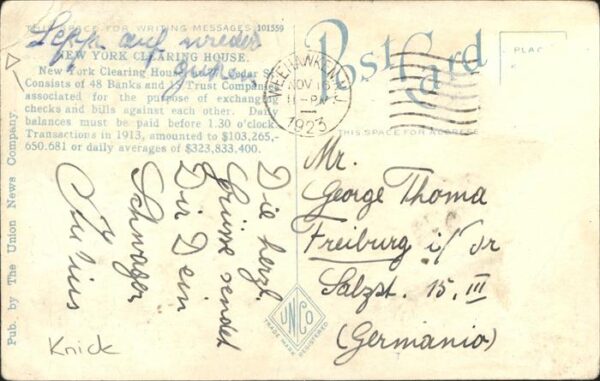 THIS SPACE FOR WRITING MESSAGES 101559
Sepp auf wieder
NEW YORK CLEARING HOUSE.
New York Clearing House, Cedar S
Consists of 48 Banks and Trust Compani
associated for the purpose of exchanging
checks and bills against each other. Daily
balances must be paid before 1.30 o'clock.
Transactions in 1913, amounted to $103,265,-
650.681 or daily averages of $323,833,400.
Die herzl.
Grüsse sendet
Dir Dein
Schwager
Julius
Knick
Pub. by The Union News Company
Post Card
PLAC
WEEHAWKEN, N.J.
NOV 16
11-PM
1923
THIS SPACE FOR ADDRESS
Mr.
George Thoma
Freiburg i/Br
Salzst. 15. III
(Germania)
UNCO
TRADE MARK REGISTERED